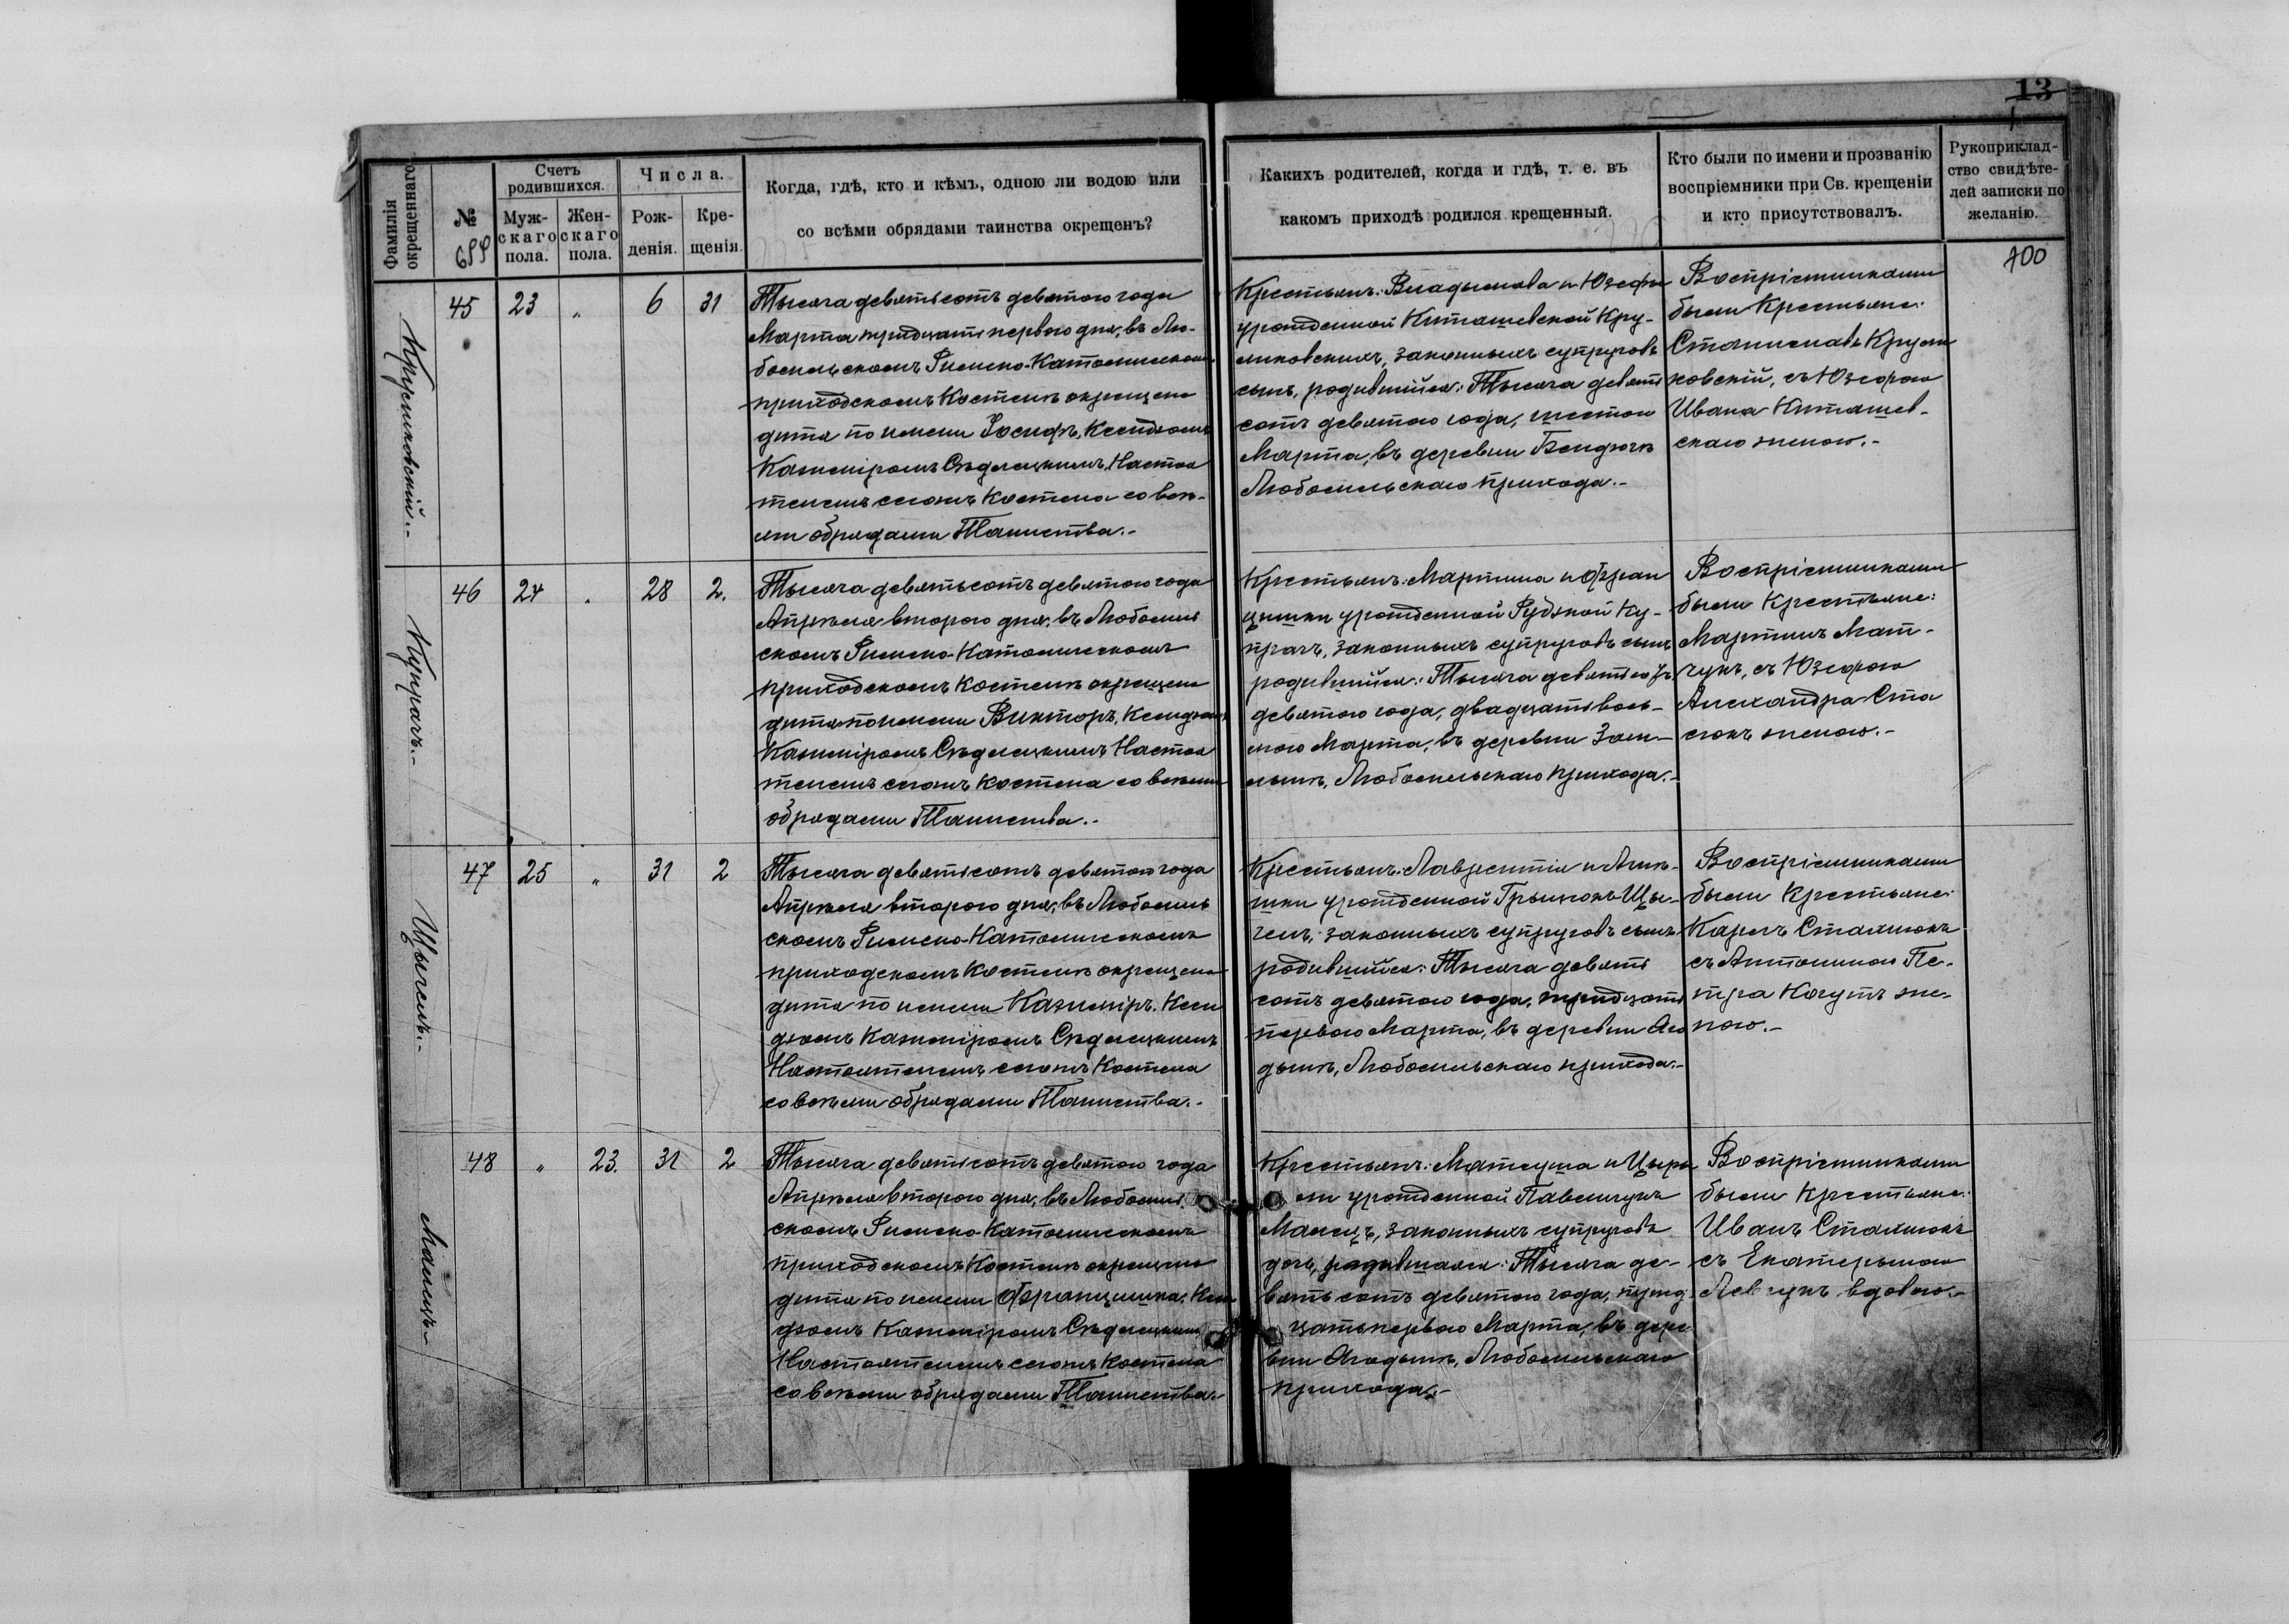 13
Фамилія окрещеннаго.
№
Счетъ родившихся.
Муж-
скаго
пола.
Жен-
скаго
пола.
Числа.
Рож-
денія.
Кре-
щенія.
Когда, гдѣ, кто и кѣмъ, одною ли водою или
со всѣми обрядами таинства окрещенъ?
Какихъ родителей, когда и гдѣ, т. е. въ
какомъ приходѣ родился крещенный.
Кто были по имени и прозванію
воспріемники при Св. крещеніи
и кто присутствовалъ.
Рукоприклад-
ство свидѣте-
лей записки по
желанію.
699
700
Круликовскій.-
45 23 „ 6 31
Тысяча девятьсотъ девятого года
Марта тридцать первого дня, въ Лю-
бомльскомъ Римско-Католическомъ
приходскомъ Костелѣ окрещено
дитя по имени Іосифъ, Ксендзомъ
Казиміромъ Сѣдлецкимъ, Настоя
телемъ сегожъ Костела со всѣ-
ми обрядами Таинства.-
Крестьянъ: Владыслава и Юзефы
урожденной Киташевской Кру-
ликовскихъ, законныхъ супруговъ
сынъ, родившійся: Тысяча девять
сотъ девятого года, шестого
Марта, въ деревни Бендюгѣ
Любомльскаго прихода.-
Воспріемниками
были Крестьяне:
Станиславъ Крули
ковскій, съ Юзефою
Ивана Киташев-
скаго женою.-
Купрачъ.-
46 24 „ 28 2.
Тысяча девятьсотъ девятого года
Апрѣля второго дня, въ Любомль
скомъ Римско-Католическомъ
приходскомъ Костелѣ окрещено
дитя по имени Викторъ, Ксендзомъ
Казиміромъ Сѣдлецкимъ Настоя
телемъ сегожъ Костела со всѣми
обрядами Таинства.-
Крестьянъ: Мартина и Фран
цишки урожденной Рудзкой Ку-
прачъ, законныхъ супруговъ сынъ
родившійся: Тысяча девятьсотъ
девятого года, двадцать вось-
мого Марта, въ деревни Зам-
лынѣ, Любомльскаго прихода.-
Воспріемниками
были Крестьяне:
Мартинъ Мат-
чукъ, съ Юзефою
Александра Ста
сюкъ женою.-
Щыгелъ.-
47 25 „ 31 2
Тысяча девятьсотъ девятого года
Апрѣля второго дня, въ Любомль
скомъ Римско-Католическомъ
приходскомъ Костелѣ окрещено
дитя по имени Казиміръ. Ксен
дзомъ Казиміромъ Сѣдлецкимъ
Настоятелемъ сегожъ Костела
со всѣми обрядами Таинства.-
Крестьянъ: Лаврентія и Агнѣ-
шки урожденной Грынюкъ Щы-
гелъ, законныхъ супруговъ сынъ
родившійся: Тысяча девять
сотъ девятого года, тридцать
первого Марта, въ деревни Яго
дынѣ, Любомльскаго прихода.-
Воспріемниками
были Крестьяне:
Карлъ Стахнюкъ
съ Антониною Пе-
тра Когутъ же-
ною.-
Малецъ.-
48 „ 23. 31 2
Тысяча девятьсотъ девятого года
Апрѣля второго дня, въ Любомль
скомъ Римско-Католическомъ
приходскомъ Костелѣ окрещено
дитя по имени Францишка. Ксен
дзомъ Казиміромъ Сѣдлецкимъ
Настоятелемъ сегожъ Костела
со всѣми обрядами Таинства.-
Крестьянъ: Матеуша и
урожденной Павельчукъ
Малецъ, законныхъ супруговъ
дочь, родившаяся: Тысяча де-
вятьсотъ девятого года, трид
цать первого Марта, въ дере
вни Ягодынѣ, Любомльскаго
прихода.-
Воспріемниками
были Крестьяне:
Иванъ Стахнюкъ
съ Екатерыною
Левчукъ вдовою.-